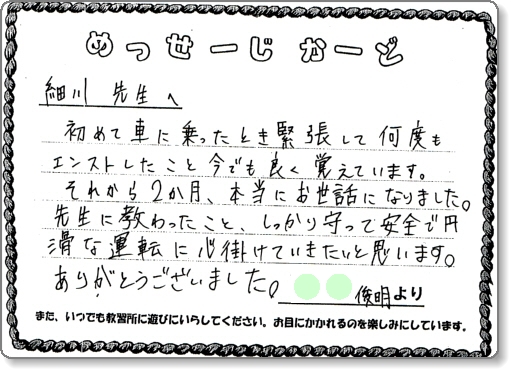 めっせーじかーど
細川 先生へ
初めて車に乗ったとき緊張して何度も
エンストしたこと今でも良く覚えています。
それから2か月、本当にお世話になりました。
先生に教わったこと、しっかり守って安全で円
滑な運転に心掛けていきたいと思います。
ありがとうございました。 俊明より
また、いつでも教習所に遊びにいらしてください。お目にかかれるのを楽しみにしています。